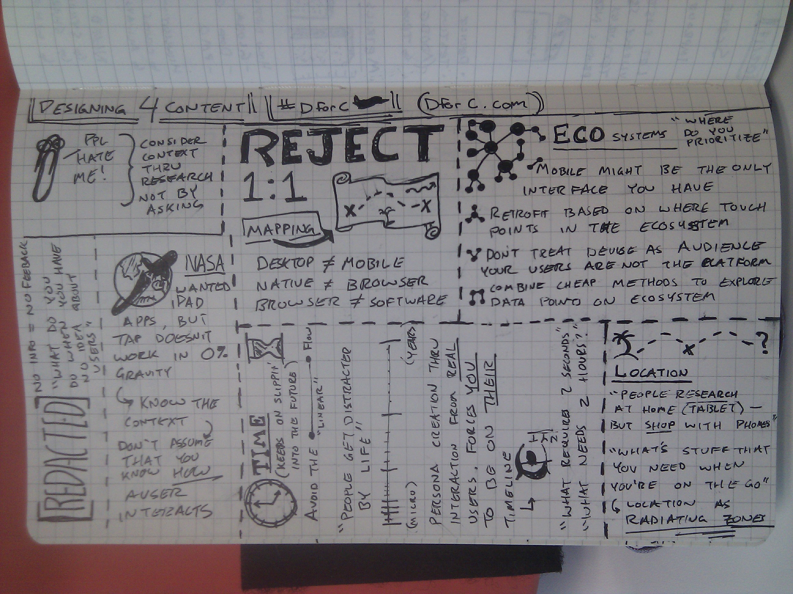 DESIGNING 4 CONTENT #DFORC (DFORC.COM)
PPL
HATE
ME!
CONSIDER
CONTEXT
THRU
RESEARCH
NOT BY
ASKING
REJECT
1:1
MAPPING
X X
DESKTOP ≠ MOBILE
NATIVE ≠ BROWSER
BROWSER ≠ SOFTWARE
ECO SYSTEMS
"WHERE
DO YOU
PRIORITIZE"
MOBILE MIGHT BE THE ONLY
INTERFACE YOU HAVE
RETROFIT BASED ON WHERE TOUCH
POINTS IN THE ECOSYSTEM
DON'T TREAT DEVICE AS AUDIENCE
YOUR USERS ARE NOT THE PLATFORM
COMBINE CHEAP METHODS TO EXPLORE
DATA POINTS ON ECOSYSTEM
[REDACTED]
NO INFO = NO FEEDBACK
"WHAT DO YOU
DO WHEN YOU HAVE
NO IDEA ABOUT
USERS"
NASA
WANTED
IPAD
APPS, BUT
TAP DOESNT
WORK IN 0%
GRAVITY
KNOW THE
CONTEXT
DON'T ASSUME
THAT YOU
KNOW HOW
A USER
INTERACTS
TIME
(KEEPS ON SLIPPIN'
INTO THE FUTURE)
AVOID THE "LINEAR" FLOW
"PEOPLE GET DISTRACTED
BY LIFE"
(MICRO) (YEARS)
PERSONA CREATION THRU
INTERACTION FROM REAL
USERS. FORCES YOU
TO BE ON THEIR
TIMELINE
"WHAT REQUIRES 2 SECONDS"
"WHAT NEEDS 2 HOURS?"
X ?
LOCATION
"PEOPLE RESEARCH
AT HOME (TABLET) —
BUT SHOP WITH PHONES"
"WHAT'S STUFF THAT
YOU NEED WHEN
YOU'RE ON THE GO"
LOCATION AS
RADIATING ZONES